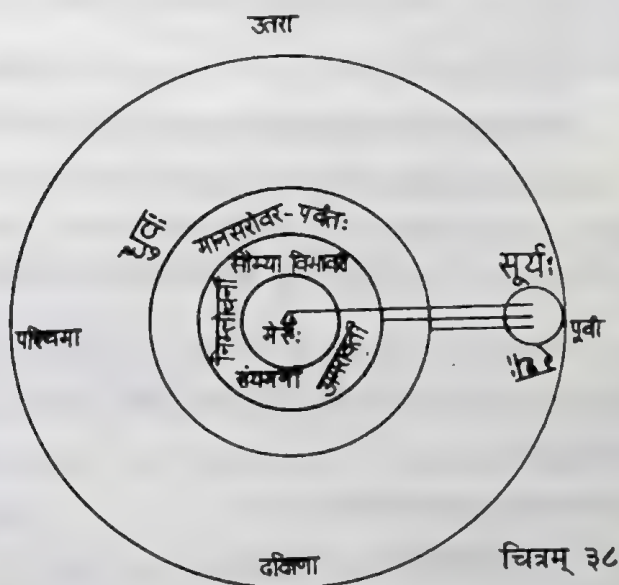 उतरा
ध्रुवः
मानसरोवर-पर्वतः
सौम्या विभावरी
निम्लोचनी
मेरुः
संयमनी
अमरावती
सूर्यः
पश्चिमा
पूर्वा
दक्षिणा
चित्रम् ३८